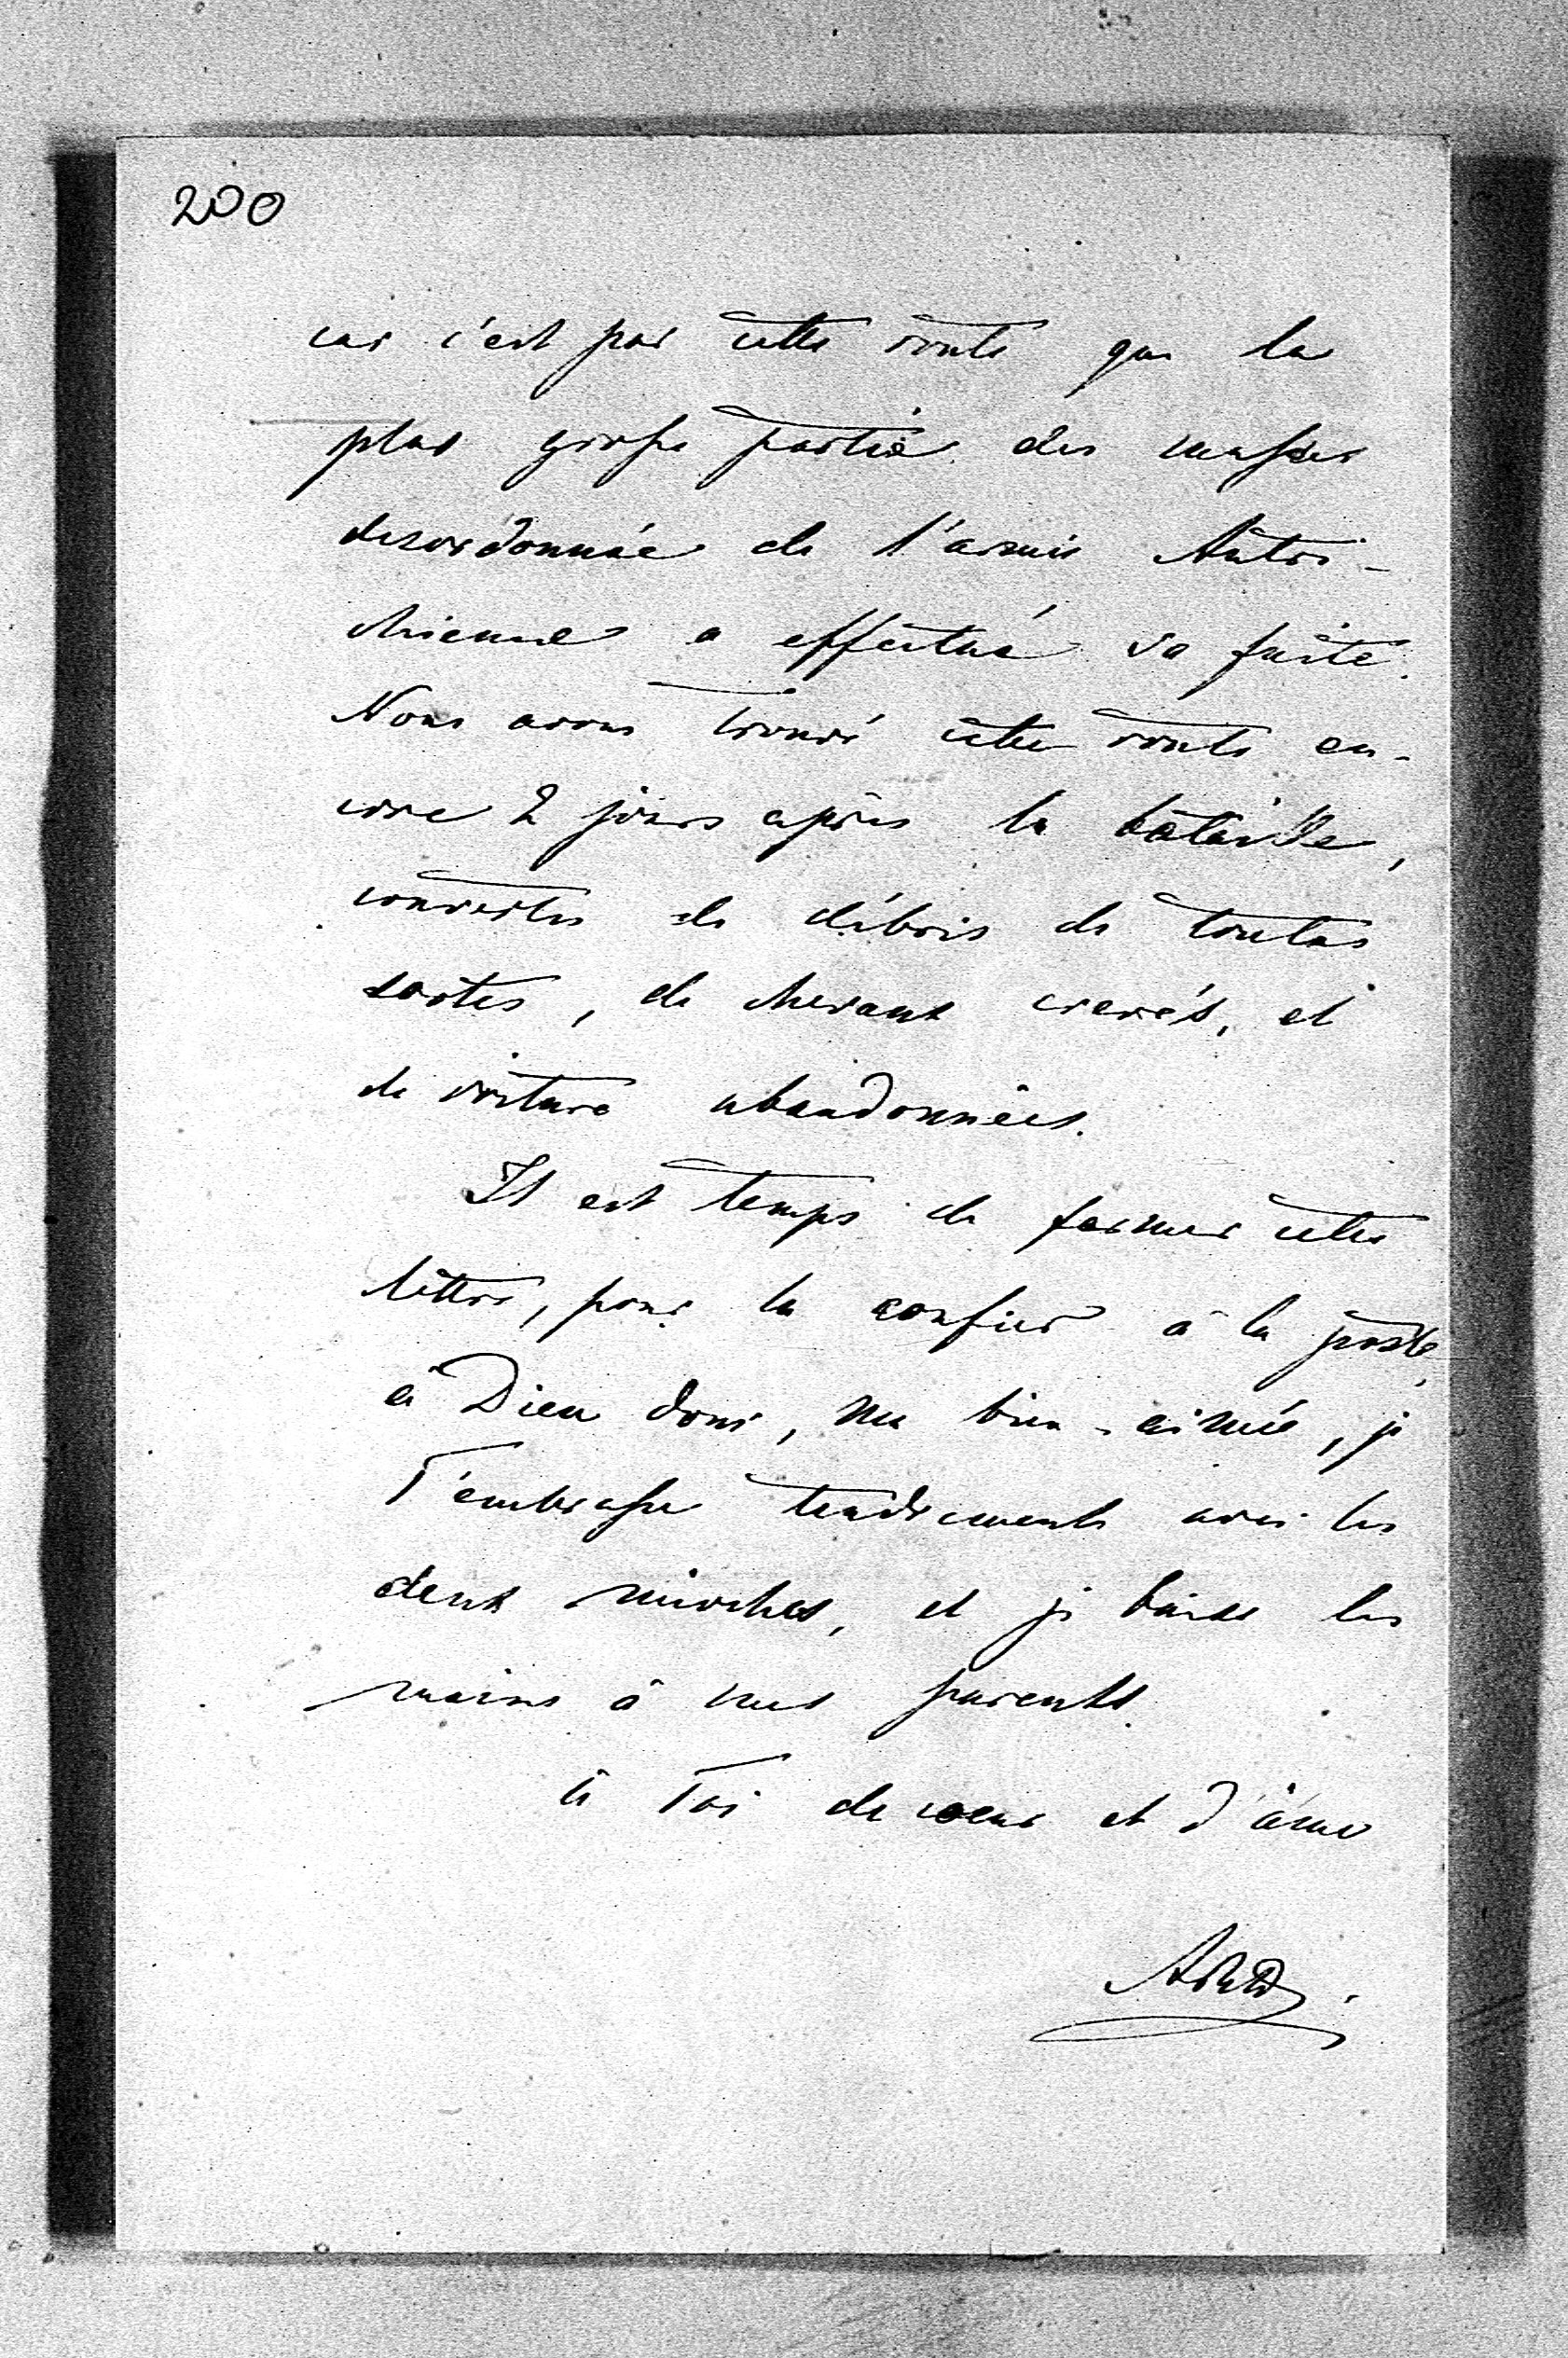 200
car c'est par cette route que la
plus grosse partie des masses
desordonnée de l'armée Autri-
chienne a effectué sa fuite.
Nous avons trouvé cette route en-
core 2 jours après la bataille,
couvertes de débris de toutes
sortes, de chevaux crevés, et
de voiture abandonnées.
Il est temps de fermer cette
lettre, pour la confier à la poste,
à Dieu donc, ma bien-aimée, je
T'embrasse tendrement avec les
deux mioches, et je baise les
mains à mes parents.
à Toi de coeur et d'âme